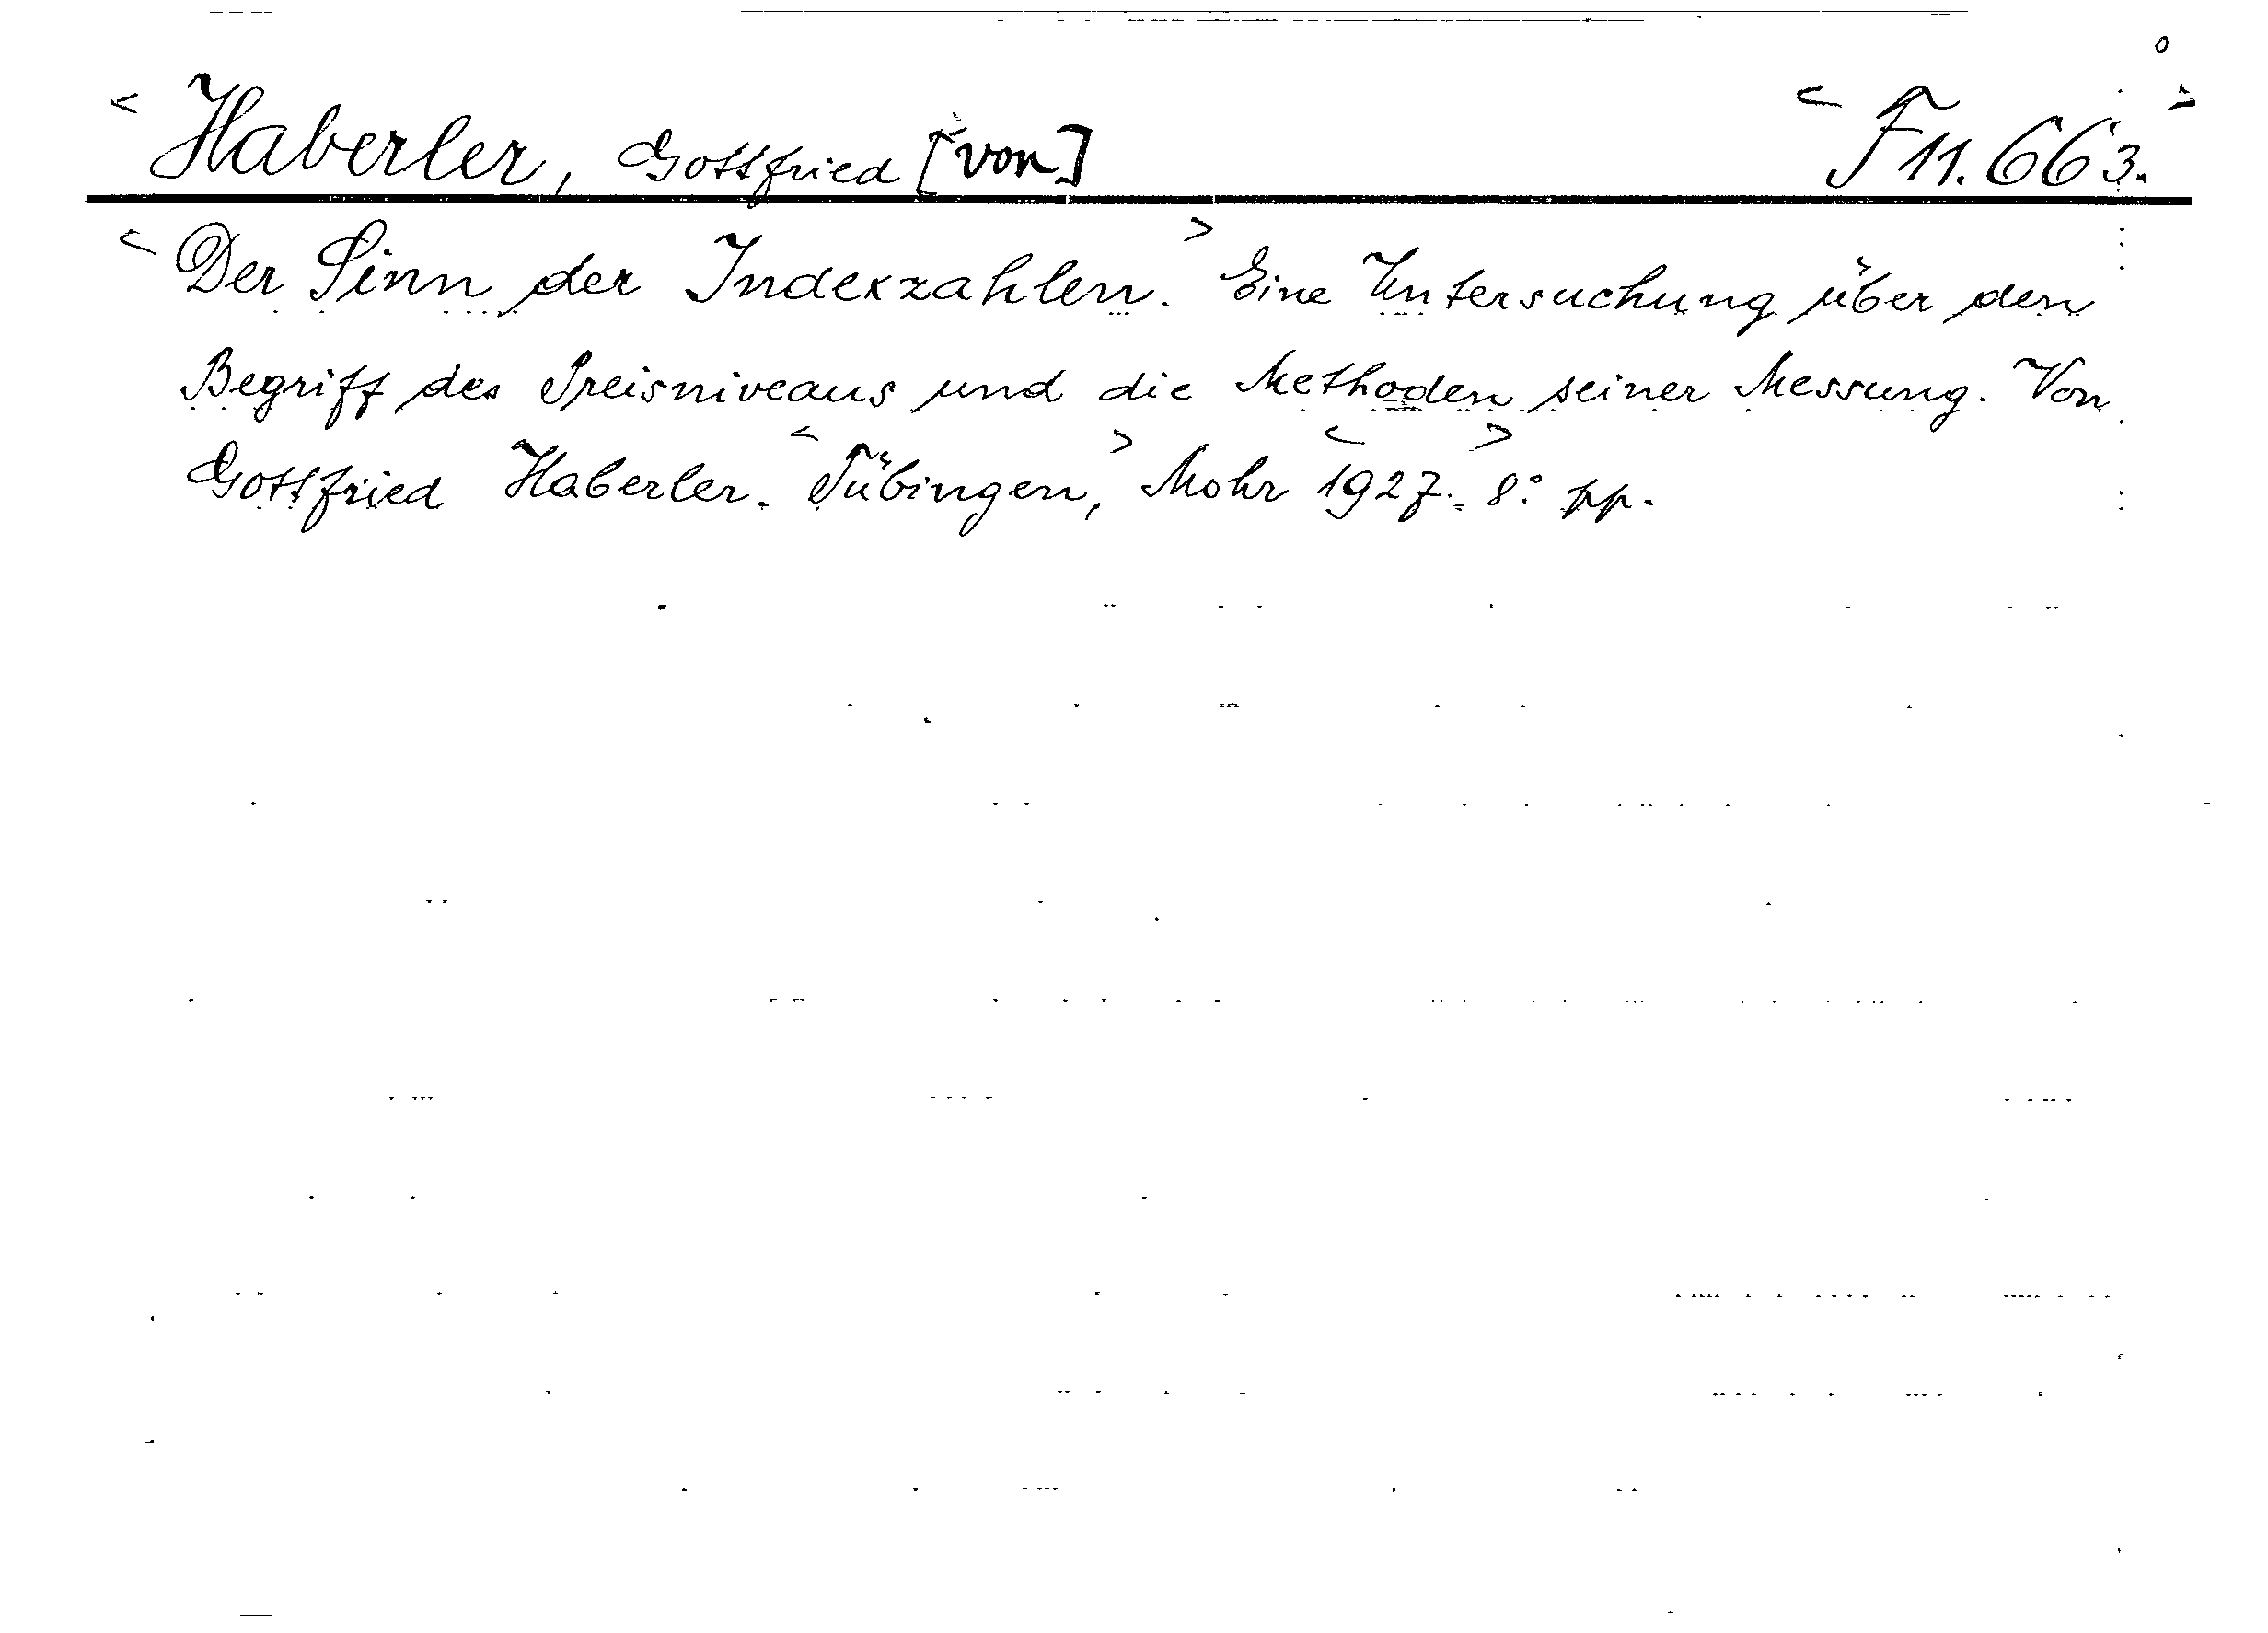 < Haberler, Gottfried [von] < F 11.663. >
< Der Sinn der Indexzahlen. > Eine Untersuchung über den
Begriff des Preisniveaus und die Methoden seiner Messung. Von
Gottfried Haberler. < Tübingen, > Mohr < 1927. > 8° pp.